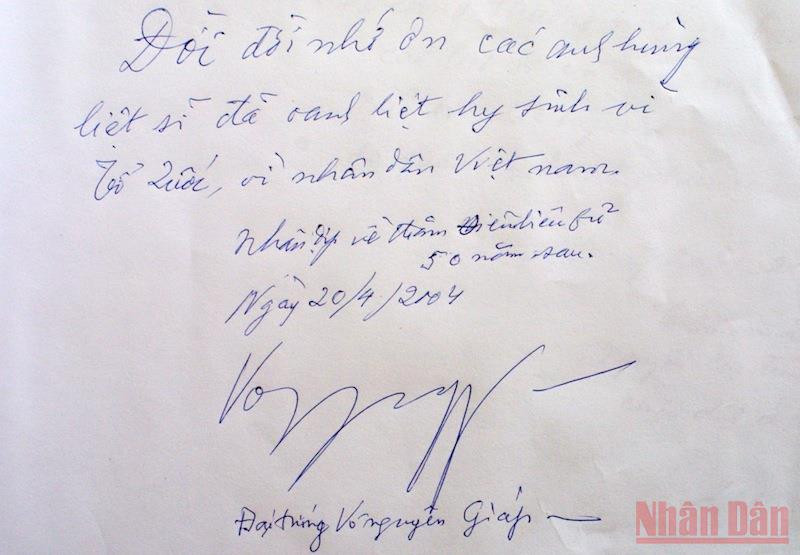 Đời đời nhớ ơn các anh hùng
liệt sĩ đã oanh liệt hy sinh vì
Tổ Quốc, vì nhân dân Việt nam.
Nhân dịp về thăm Điện biên Fủ
50 năm sau.
Ngày 20/4/2004
Đại tướng Võ nguyên Giáp
Nhân Dân